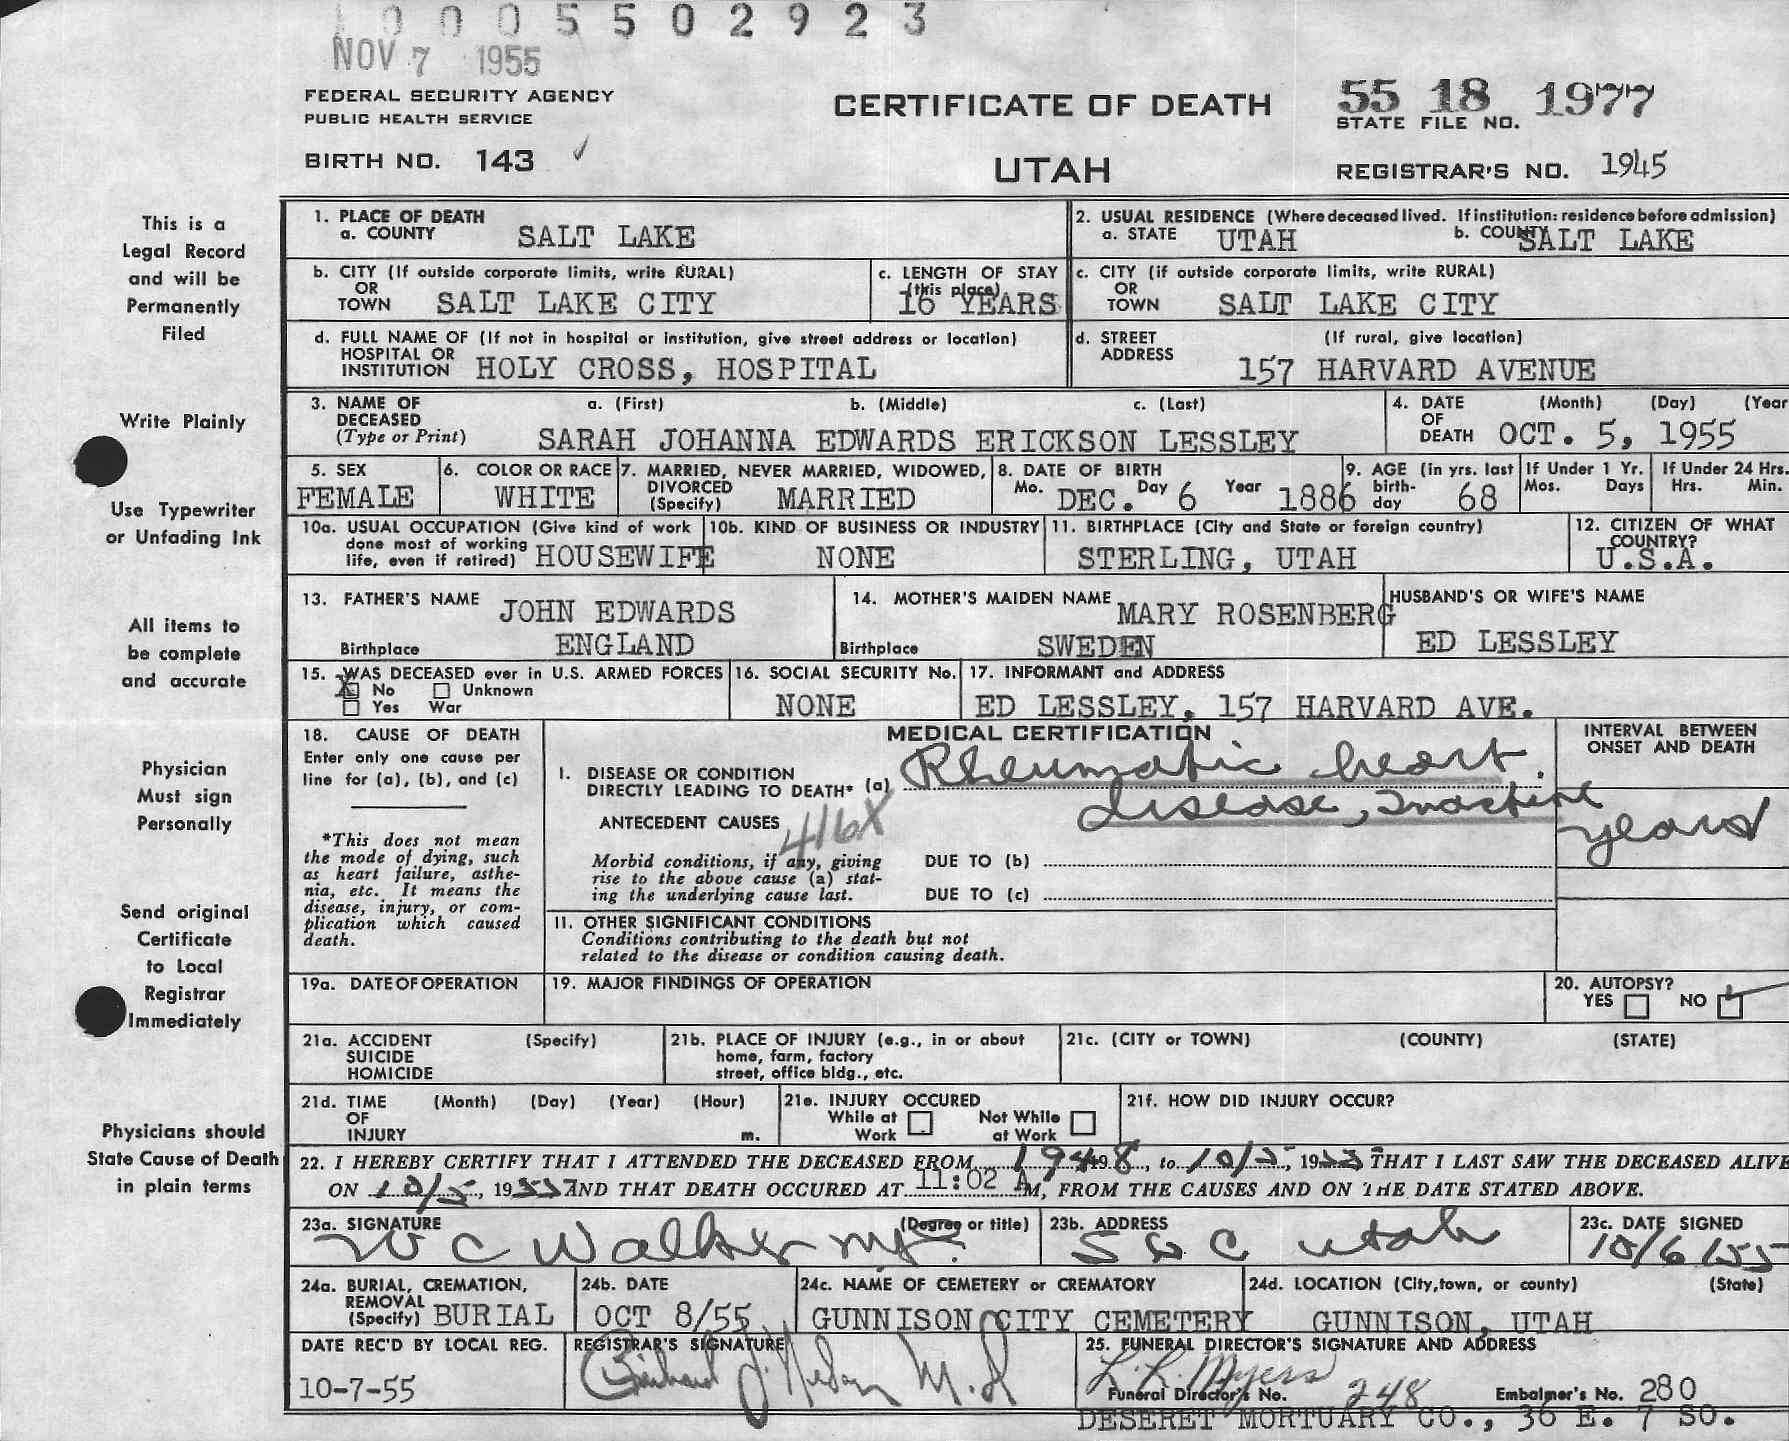 0005502923
NOV 7 1955
FEDERAL SECURITY AGENCY
PUBLIC HEALTH SERVICE
BIRTH NO. 143 ✓
CERTIFICATE OF DEATH
UTAH
55 18 1977
STATE FILE NO.
REGISTRAR'S NO. 1945
This is a
Legal Record
and will be
Permanently
Filed
Write Plainly
Use Typewriter
or Unfading Ink
All items to
be complete
and accurate
Physician
Must sign
Personally
Send original
Certificate
to Local
Registrar
Immediately
Physicians should
State Cause of Death
in plain terms
1. PLACE OF DEATH
a. COUNTY SALT LAKE
2. USUAL RESIDENCE (Where deceased lived. If institution: residence before admission)
a. STATE UTAH b. COUNTY SALT LAKE
b. CITY (If outside corporate limits, write RURAL)
OR
TOWN SALT LAKE CITY
c. LENGTH OF STAY
(this place)
16 YEARS
c. CITY (if outside corporate limits, write RURAL)
OR
TOWN SALT LAKE CITY
d. FULL NAME OF (If not in hospital or institution, give street address or location)
HOSPITAL OR
INSTITUTION HOLY CROSS, HOSPITAL
d. STREET (If rural, give location)
ADDRESS
157 HARVARD AVENUE
3. NAME OF a. (First) b. (Middle) c. (Last)
DECEASED
(Type or Print) SARAH JOHANNA EDWARDS ERICKSON LESSLEY
4. DATE (Month) (Day) (Year
OF
DEATH OCT. 5, 1955
5. SEX
FEMALE
6. COLOR OR RACE
WHITE
7. MARRIED, NEVER MARRIED, WIDOWED,
DIVORCED
(Specify) MARRIED
8. DATE OF BIRTH
Mo. DEC. Day 6 Year 1886
9. AGE (in yrs. last
birth-
day 68
If Under 1 Yr.
Mos. Days
If Under 24 Hrs.
Hrs. Min.
10a. USUAL OCCUPATION (Give kind of work
done most of working
life, even if retired) HOUSEWIFE
10b. KIND OF BUSINESS OR INDUSTRY
NONE
11. BIRTHPLACE (City and State or foreign country)
STERLING, UTAH
12. CITIZEN OF WHAT
COUNTRY?
U.S.A.
13. FATHER'S NAME JOHN EDWARDS
Birthplace ENGLAND
14. MOTHER'S MAIDEN NAME MARY ROSENBERG
Birthplace SWEDEN
HUSBAND'S OR WIFE'S NAME
ED LESSLEY
15. WAS DECEASED ever in U.S. ARMED FORCES
X No Unknown
Yes War
16. SOCIAL SECURITY No.
NONE
17. INFORMANT and ADDRESS
ED LESSLEY, 157 HARVARD AVE.
18. CAUSE OF DEATH
Enter only one cause per
line for (a), (b), and (c)
*This does not mean
the mode of dying, such
as heart failure, asthe-
nia, etc. It means the
disease, injury, or com-
plication which caused
death.
MEDICAL CERTIFICATION
I. DISEASE OR CONDITION
DIRECTLY LEADING TO DEATH* (a) Rheumatic heart
disease, inactive
ANTECEDENT CAUSES 416X
Morbid conditions, if any, giving
rise to the above cause (a) stat-
ing the underlying cause last.
DUE TO (b)
DUE TO (c)
INTERVAL BETWEEN
ONSET AND DEATH
years
II. OTHER SIGNIFICANT CONDITIONS
Conditions contributing to the death but not
related to the disease or condition causing death.
19a. DATE OF OPERATION
19. MAJOR FINDINGS OF OPERATION
20. AUTOPSY?
YES NO ✓
21a. ACCIDENT (Specify)
SUICIDE
HOMICIDE
21b. PLACE OF INJURY (e.g., in or about
home, farm, factory
street, office bldg., etc.
21c. (CITY or TOWN) (COUNTY) (STATE)
21d. TIME (Month) (Day) (Year) (Hour)
OF
INJURY m.
21e. INJURY OCCURED
While at Work Not While at Work
21f. HOW DID INJURY OCCUR?
22. I HEREBY CERTIFY THAT I ATTENDED THE DECEASED FROM 1948, to 10/5, 1955 THAT I LAST SAW THE DECEASED ALIVE
ON 10/5, 1955 AND THAT DEATH OCCURED AT 11:02 A M, FROM THE CAUSES AND ON THE DATE STATED ABOVE.
23a. SIGNATURE (Degree or title)
W C Walker MD.
23b. ADDRESS
S L C Utah
23c. DATE SIGNED
10/6/55
24a. BURIAL, CREMATION,
REMOVAL
(Specify) BURIAL
24b. DATE
OCT 8/55
24c. NAME OF CEMETERY or CREMATORY
GUNNISON CITY CEMETERY
24d. LOCATION (City, town, or county) (State)
GUNNISON, UTAH
DATE REC'D BY LOCAL REG.
10-7-55
REGISTRAR'S SIGNATURE
J. Nelson M.D
25. FUNERAL DIRECTOR'S SIGNATURE AND ADDRESS
L. R. Myers
Funeral Director's No. 248 Embalmer's No. 280
DESERET MORTUARY CO., 36 E. 7 SO.